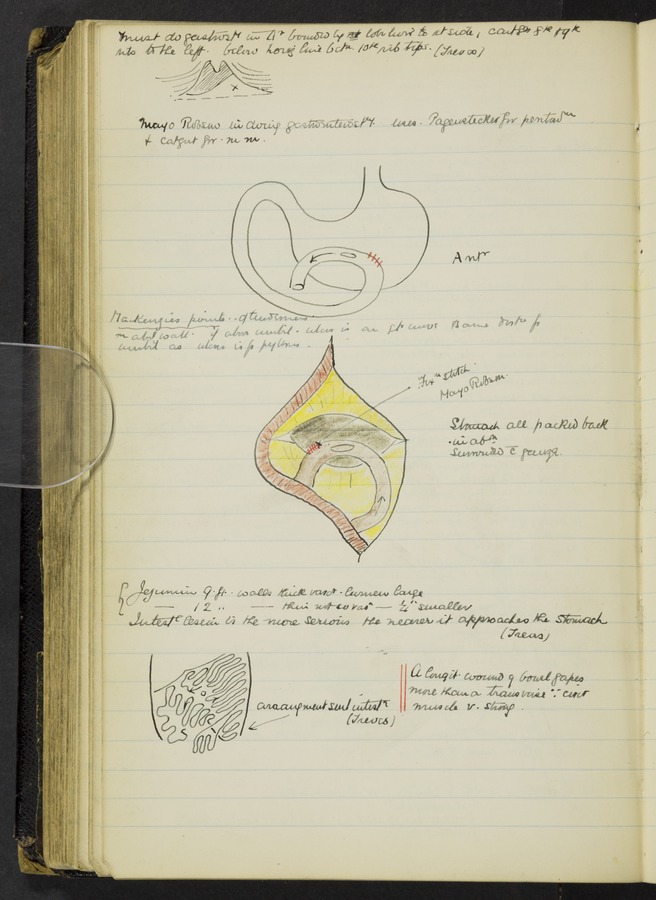 must do gastrost in Δ bounded by lobe liver to rt side, cart 8th 9th
ribs to the left. below horiz line betn 10th rib tips. (Treves)
x
Mayo Robson in doing gastroenterosty. uses. Pagenstecker for peritonm
& catgut for m m.
Antr
Mackenzies points of tenderness
in abd wall. if abov umbil. ulcer is same dist fr
umbil as ulcer is fr pylorus.
Fixn stitch.
Mayo Robson.
Stomach all packed back
in abn
surrounded c̄ gauze.
Jejunum 9 ft. walls thick vasr. lumen large
— 12 " — thin not so vasr — ¼" smaller
Intestl lesion is the more serious the nearer it approaches the stomach
(Treves)
A longit wound of bowel gapes
more than a transverse ∵ circr
muscle v. strong.
arrangement small intestn
(Treves)